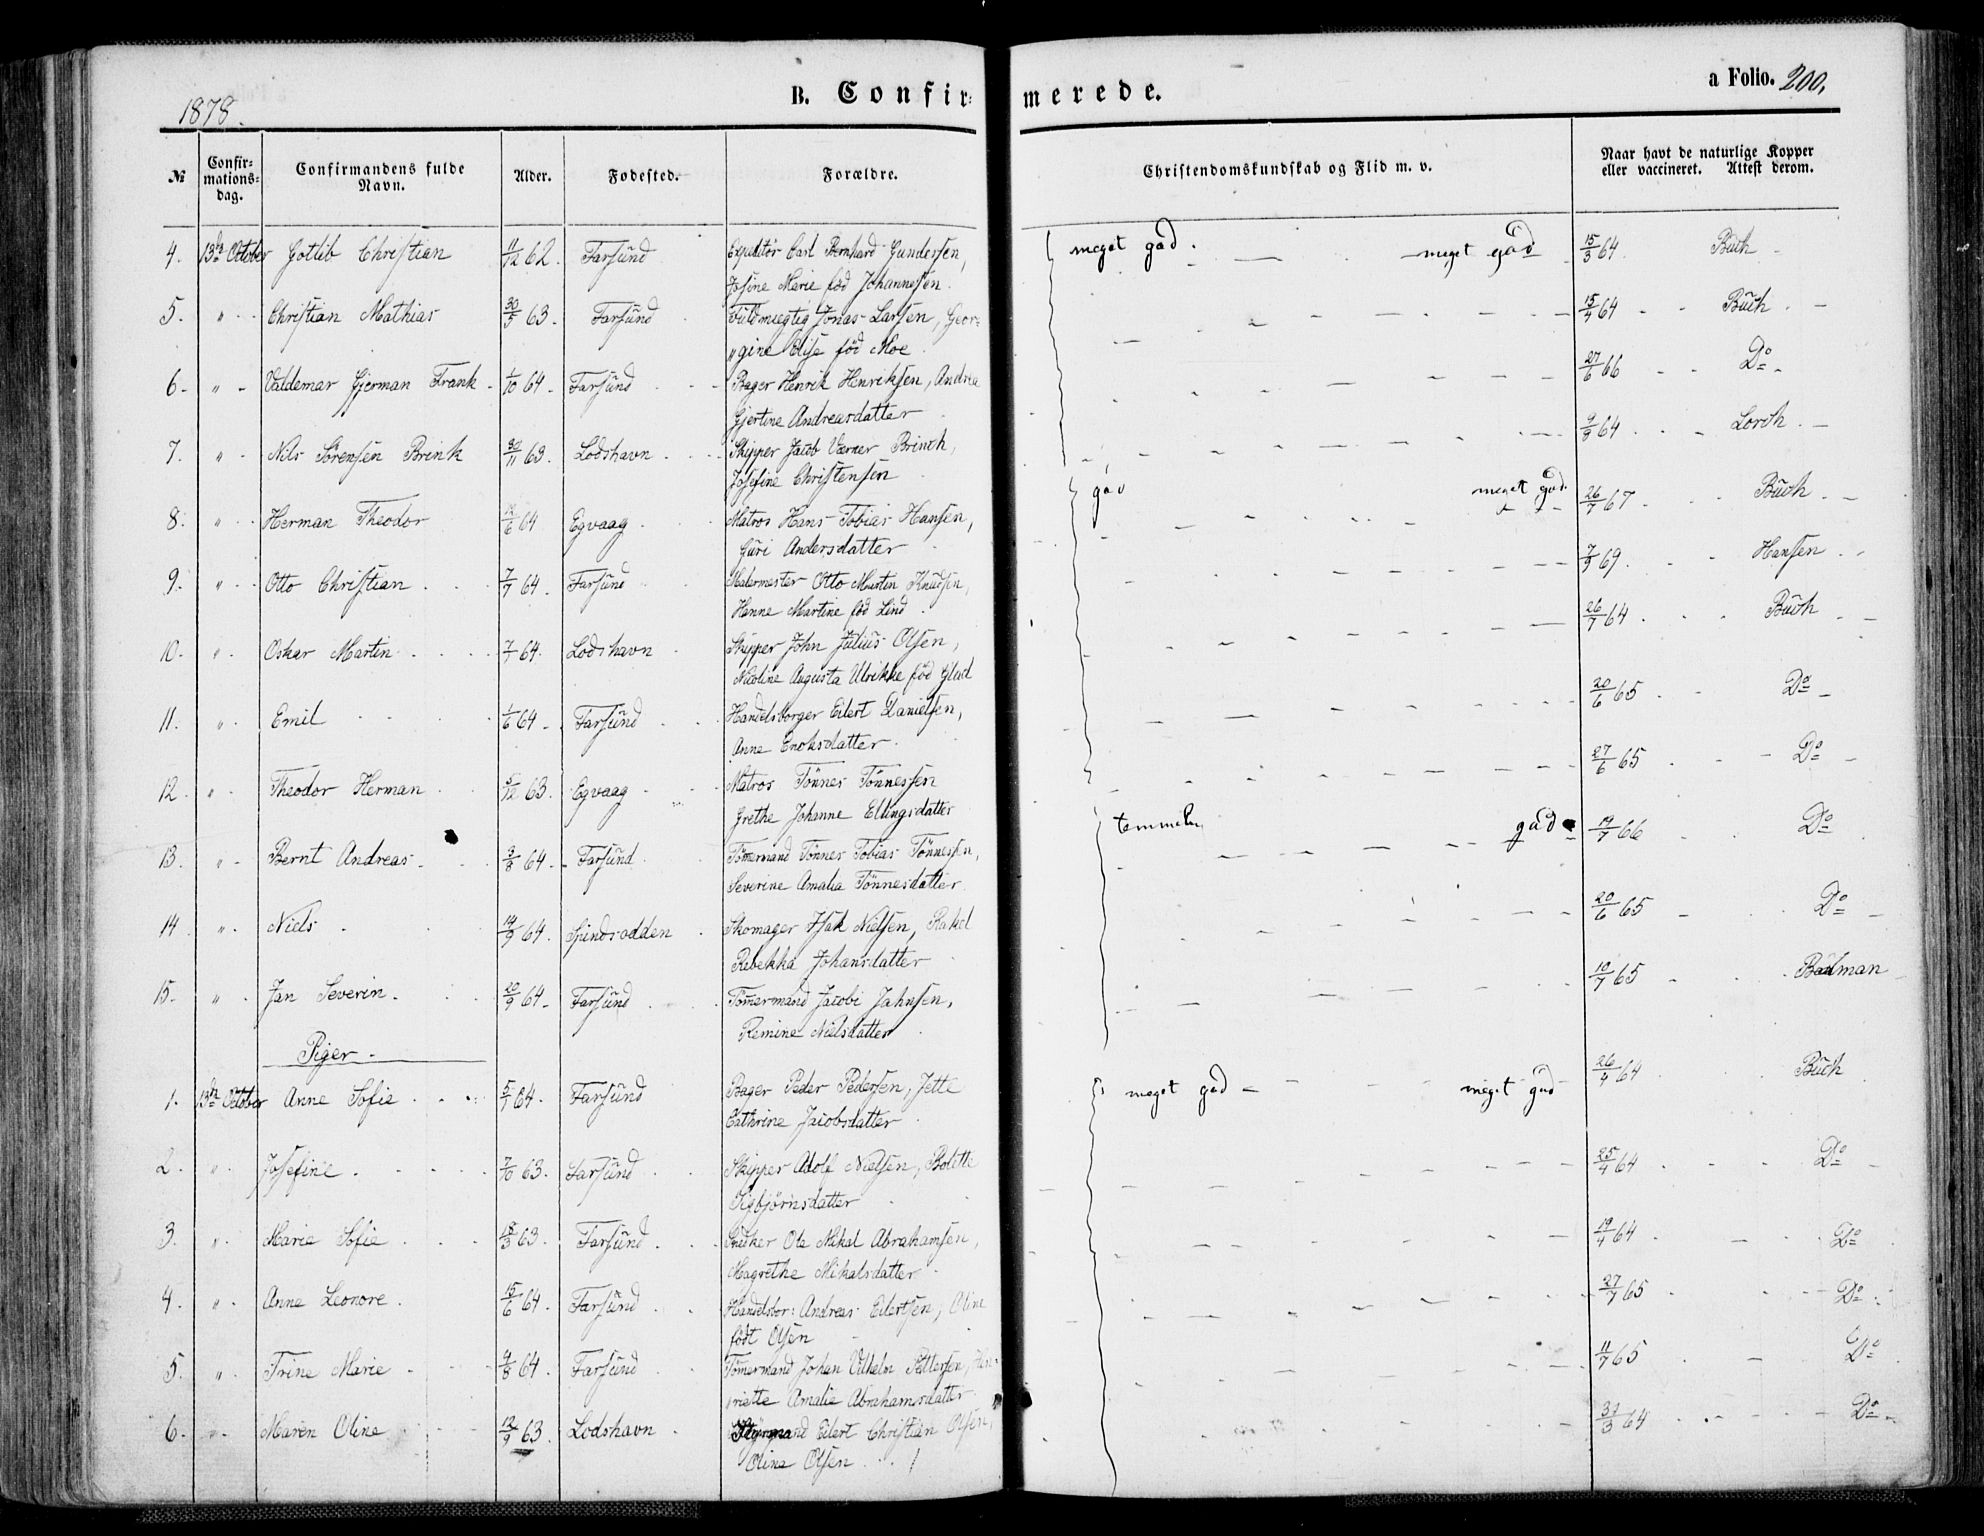 1878.
B. Confir-merede.
a Folio. 200.
№ Confir-mations-dag. Confirmandens fulde Navn. Alder. Fødested. Forældre. Christendomskundskab og Flid m. v. Naar havt de naturlige Kopper eller vaccineret. Attest derom.
4. 13de October Gotlib Christian 11/12 62. Farsund Expeditør Carl Bernhard Gundersen, meget god. — — meget god 15/3 64. Buch -
Josine Marie fød Johannessen.
5. " - Christian Mathias 30/5 63. Farsund Fuldmægtig Jonas Larsen, Geor= 15/4 64 - - Buch. -
"gine Elise fød Moe.
6. " - Valdemar Hjerman Frank. 1/10 64. Farsund Bager Henrik Henriksen, Andrea 27/6 66 Do -
Gjertine Andreasdatter
7. " - Nils Sörensen Brink 30/11 63. Lodshavn Skipper Jacob Værner Brinch, 9/9 64. Lorch. -
Josefine Christensen
8. " - Herman Theodor /6 64 Egvaag. Matros Hans Tobias Hansen, god meget god. 26/7 67 Buch. -
Guri Andersdatter
9. " - Otto Christian 7/7 64. Farsund Malermester Otto Martin Knudsen, 7/9 69. Hansen. -
Hanne Martine fød Lind.
10. " . Oskar Martin 7/7 64. Lodshavn Skipper John Julius Olsen, 26/7 64 Buch
Nicoline Augusta Ulrikke fød Glad
11. " . Emil 1/6 64 - Farsund Handelsborger Eilert Danielsen, 20/6 65. Do -
Anne Enoksdatter.
12. " . Theodor Herman 5/12 63. Egvaag Matros Tönnes Tönnessen 27/6 65 Do -
Grethe Johanne Ellingsdatter
13. " - Bernt Andreas 3/8 64 - Farsund Tömermand Tönnes Tobias Tönnessen, temmelig god 19/7 66 Do
Severine Amalia Tönnesdatter
14. " . Niels 14/9 64. Spindsodden Skomager Isak Nielsen, Rakel 20/6 65 Do -
Rebekka Johansdatter
15. " . Jan Severin. 20/9 64. Farsund Tömermand Jacobi Jahnsen, 10/7 65 Bödman
Remine Nielsdatter
Piger.
1. 13de October Anne Sofie 5/7 64. Farsund Bager Peder Pedersen, Jette meget god - meget god 26/4 64 Buch
Cathrine Jacobsdatter
2. " . Josefine 7/10 63. Farsund Skipper Adolf Nielsen, Bolette 25/4 64 Do -
Sigbjörnsdatter
3. " . Marie Sofie 18/3 63. Farsund Snedker Ole Mikal Abrahamsen, 19/4 64 Do
Magrethe Mikalsdatter
4. " . Anne Leonore. 15/6 64. Farsund Handelsbor: Andreas Eilertsen, Oline 27/7 65 Do
födt Olsen
5. " . Trine Marie 4/8 64. Farsund Tömermand Johan Vilhelm Pettersen, Hen= 11/7 65 Do
riette Amalie Abrahamsdatter
6. " - Maren Oline 12/9 63. Lodshavn Styrmand Eilert Christian Olsen, 31/3 64 Do -
Oline Olsen